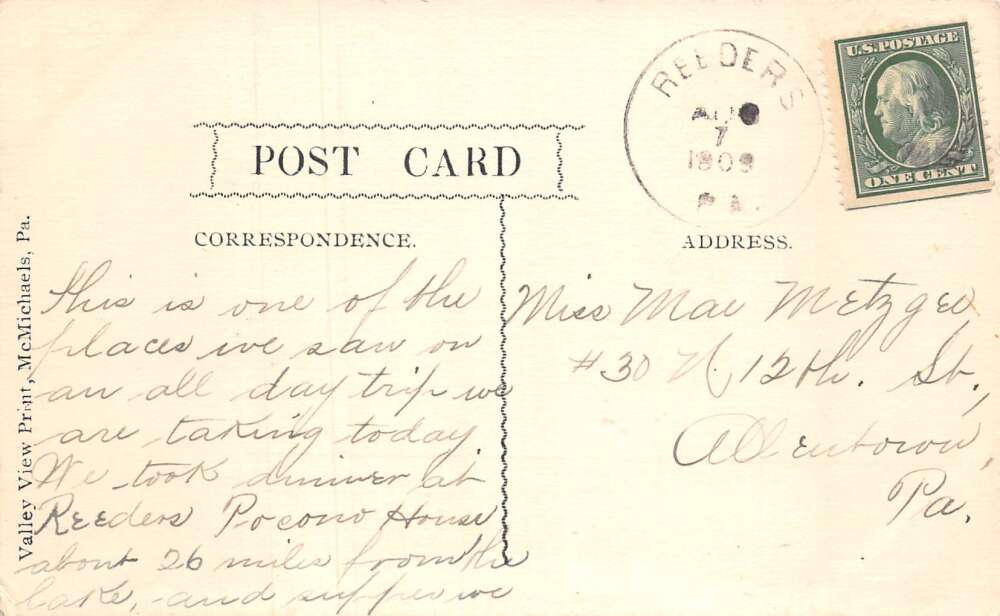 U.S. POSTAGE
ONE CENT
REEDERS
AUG
7
1909
PA.
POST CARD
CORRESPONDENCE.
ADDRESS.
Valley View Print, McMichaels, Pa.
This is one of the
places we saw on
an all day trip we
are taking today
We took dinner at
Reeders Pocono House
about 26 miles from the
lake, and supper we
Miss Mae Metzger
#30 N. 12th. St.,
Allentown,
Pa.